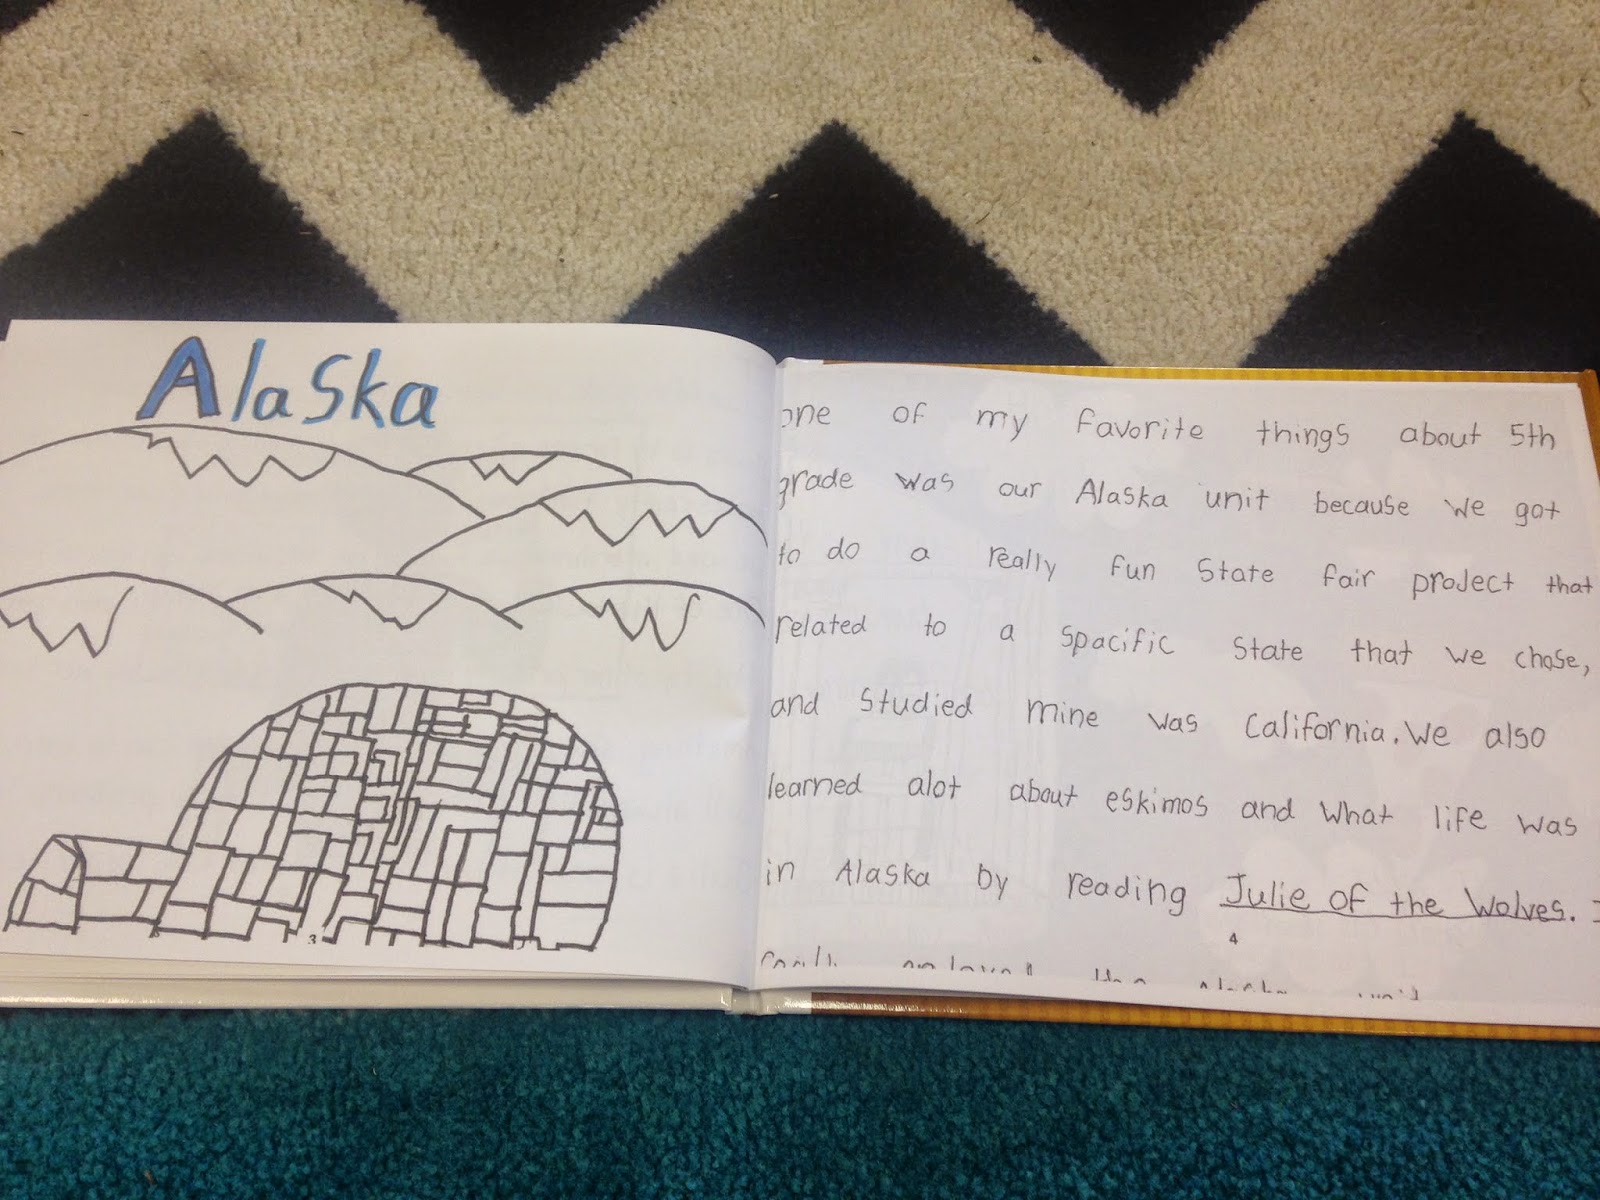 Alaska
3
one of my favorite things about 5th
grade was our Alaska unit because we got
to do a really fun State fair project that
related to a spacific State that we chose,
and Studied mine was California. We also
learned alot about eskimos and what life was
in Alaska by reading Julie of the Wolves. I
4
really enjoyed the Alaska unit